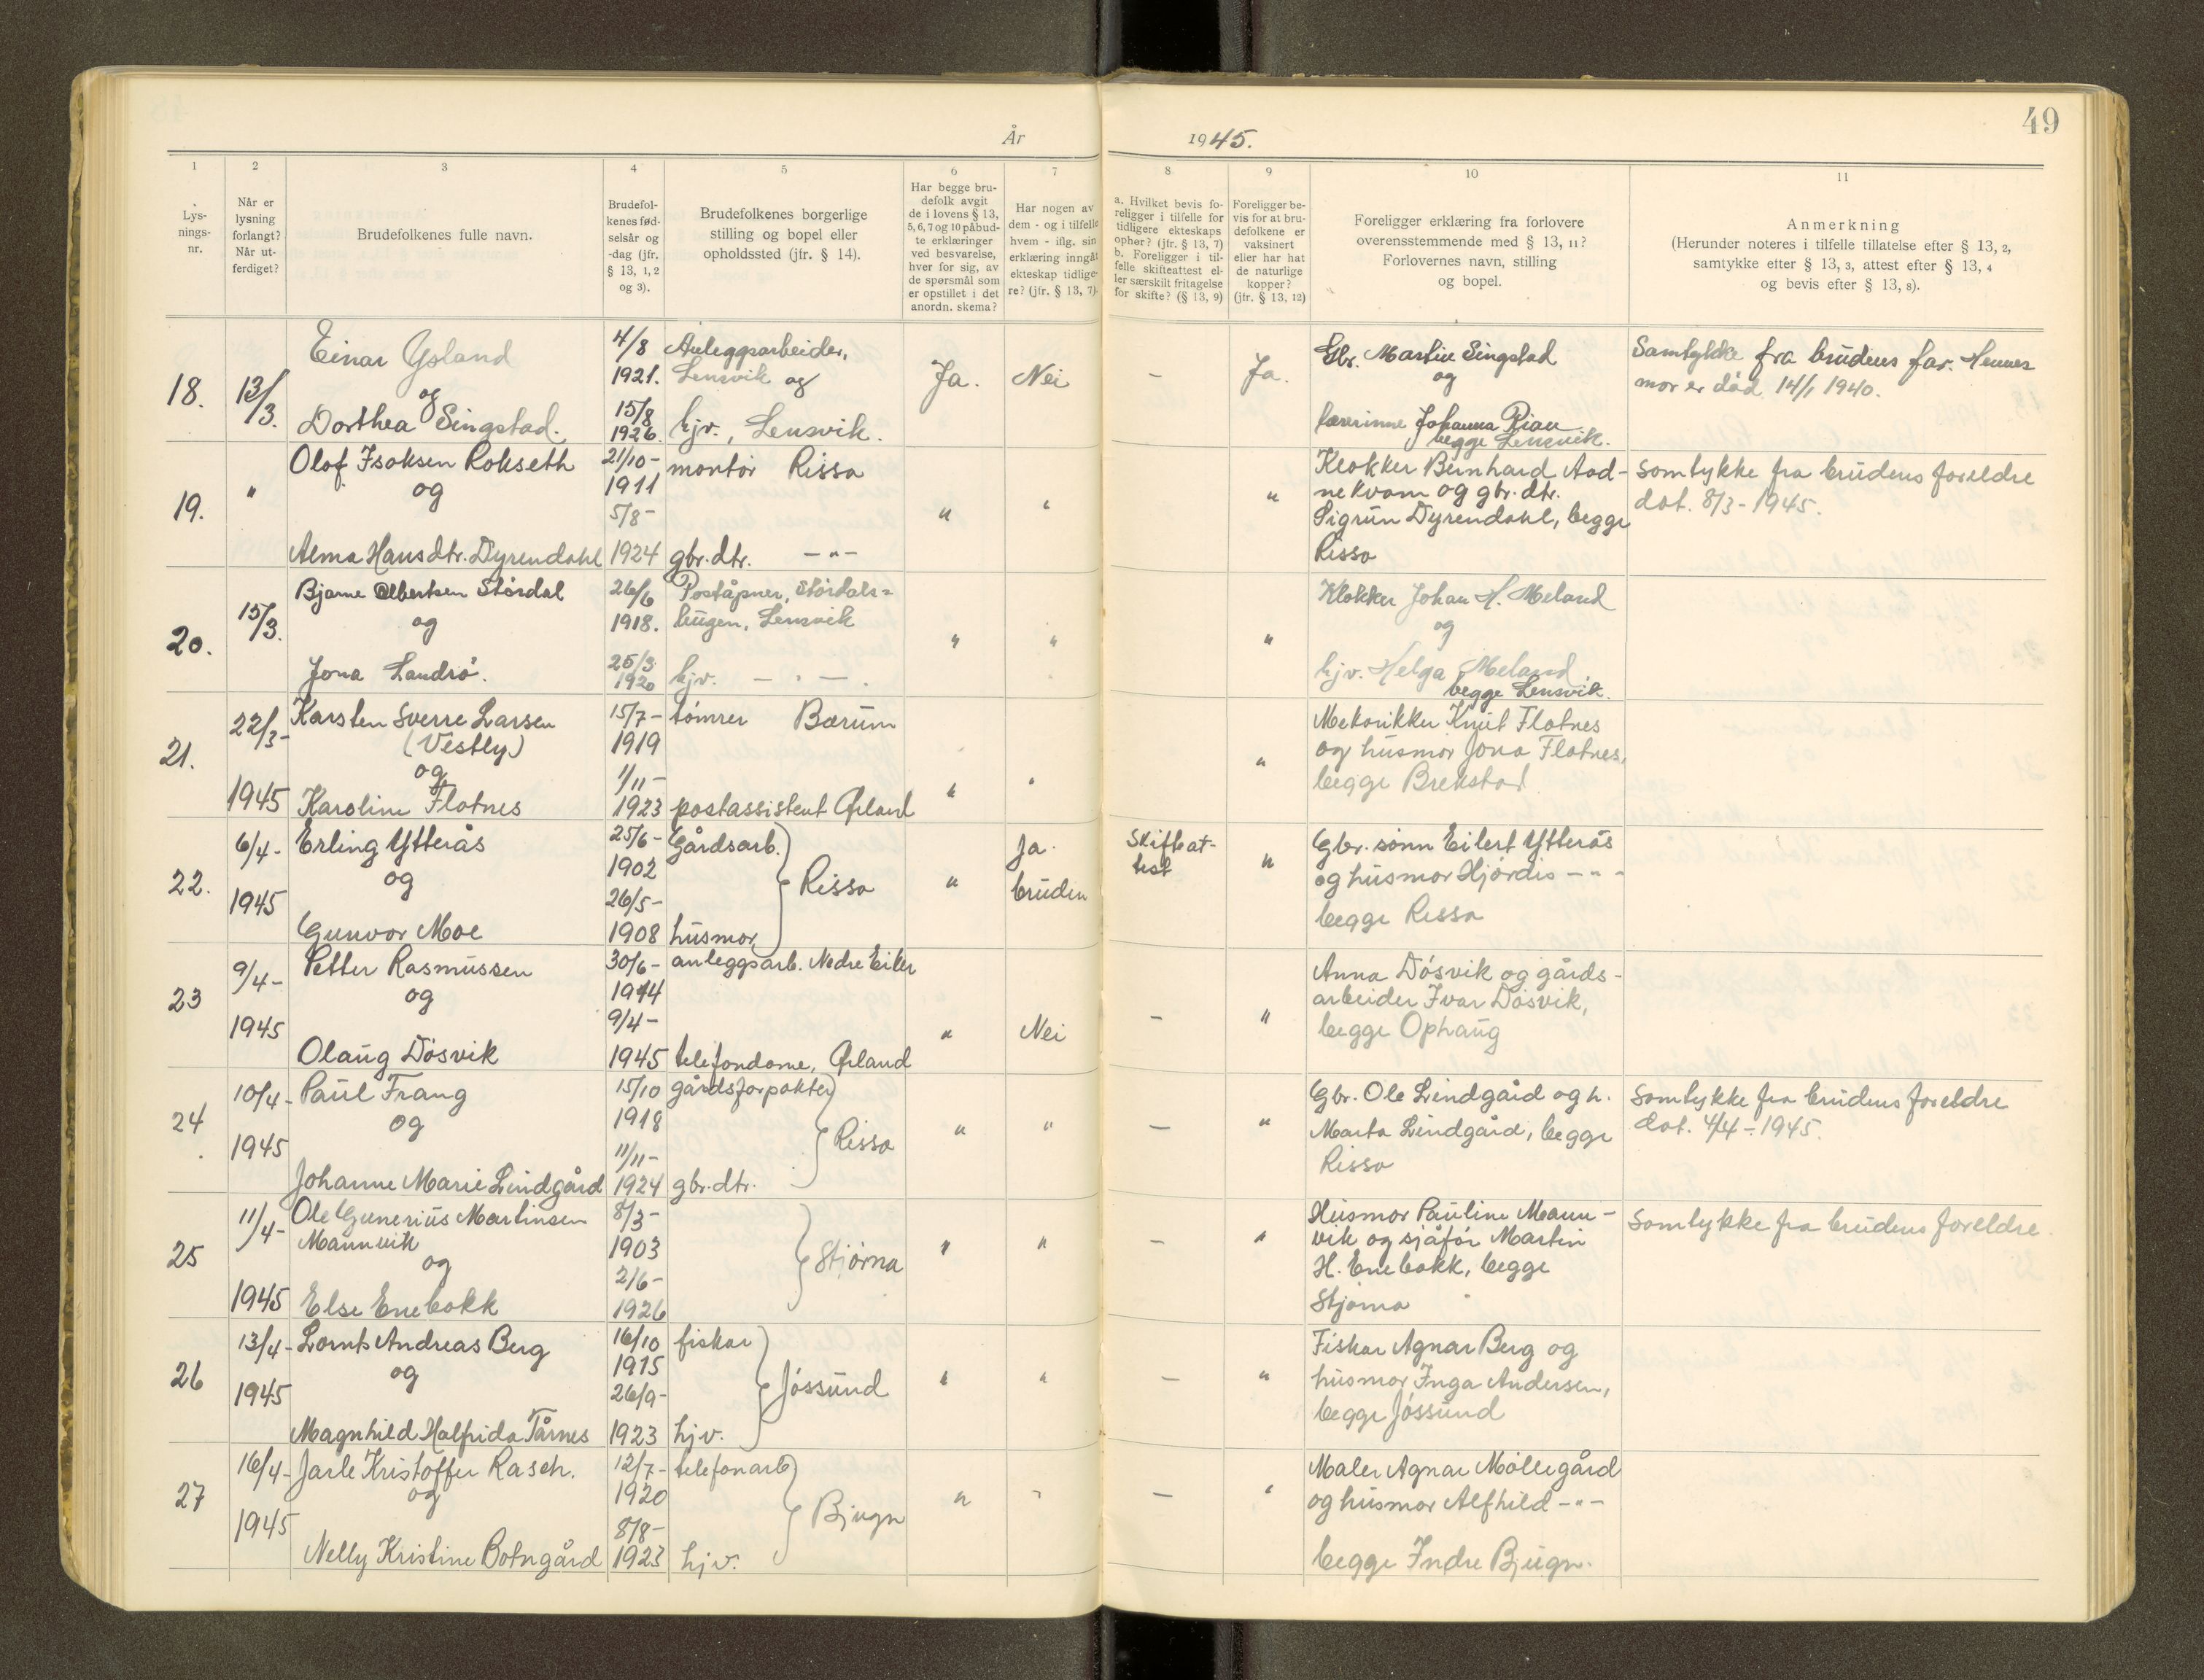 49
År 1945.
1 2 3 4 5 6 7 8 9 10 11
Lys-
nings-
nr.
Når er
lysning
forlangt?
Når ut-
ferdiget?
Brudefolkenes fulle navn.
Brudefol-
kenes fød-
selsår og
-dag (jfr.
§ 13, 1, 2
og 3).
Brudefolkenes borgerlige
stilling og bopel eller
opholdssted (jfr. § 14).
Har begge bru-
defolk avgit
de i lovens § 13,
5, 6, 7 og 10 påbud-
te erklæringer
ved besvarelse,
hver for sig, av
de spørsmål som
er opstillet i det
anordn. skema?
Har nogen av
dem - og i tilfelle
hvem - iflg. sin
erklæring inngåt
ekteskap tidlige-
re? (jfr. § 13, 7)
a. Hvilket bevis fo-
religger i tilfelle for
tidligere ekteskaps
ophør? (jfr. § 13, 7)
b. Foreligger i til-
felle skifteattest el-
ler særskilt fritagelse
for skifte? (§ 13, 9)
Foreligger be-
vis for at bru-
defolkene er
vaksinert
eller har hat
de naturlige
kopper?
(jfr. § 13, 12)
Foreligger erklæring fra forlovere
overensstemmende med § 13, 11?
Forlovernes navn, stilling
og bopel.
Anmerkning
(Herunder noteres i tilfelle tillatelse efter § 13, 2,
samtykke efter § 13, 3, attest efter § 13, 4
og bevis efter § 13, 8).
18. 13/3.
Einar Ysland
og
Dorthea Singstad.
4/8
1921.
15/8
1926.
Anleggsarbeider,
Lensvik og
hjv., Lensvik.
Ja. Nei – Ja.
Gbr. Martin Singstad
og
lærerinne Johanna Rian
begge Lensvik.
Samtykke fra brudens far. Hennes
mor er død 14/1 1940.
19. "
Olof Isaksen Rokseth
og
Alma Hansdtr. Dyrendahl
21/10-
1911
5/8-
1924
montør Rissa
gbr. dtr. — " —
" " "
Klokker Bernhard Aad-
ne Kvam og gbr. dtr.
Sigrun Dyrendahl, begge
Rissa
Samtykke fra brudens foreldre
dat. 8/3-1945.
20. 15/3.
Bjarne Albertsen Størdal
og
Jona Landrø.
26/6
1918.
25/3
1920
Poståpner, Størdals-
haugen, Lensvik
hjv. — " —.
" " "
Klokker Johan H. Meland
og
hjv. Helga Meland
begge Lensvik.
21. 22/3-
1945
Karsten Sverre Larsen
(Vestly)
og
Karoline Flatnes
15/7-
1919
1/11-
1923
tømrer Bærum
postassistent Ørland
" " "
Mekanikker Knut Flatnes
og husmor Jona Flatnes,
begge Brekstad
22. 6/4-
1945
Erling Ytterås
og
Gunvor Moe
25/6-
1902
26/5-
1908
Gårdsarb.
Rissa
husmor
" Ja.
bruden
Skifteat-
test
"
Gbr. sønn Eilert Ytterås
og husmor Hjørdis — " —
begge Rissa
23 9/4-
1945
Petter Rasmussen
og
Olaug Døsvik
30/6-
1914
9/4-
1945
anleggsarb. Nedre Eiker
telefondame, Ørland
" Nei – "
Anna Døsvik og gårds-
arbeider Ivar Døsvik,
begge Ophaug
24. 10/4-
1945
Paul Frang
og
Johanne Marie Lindgård
15/10
1918
11/11-
1924
gårdsforpakter
Rissa
gbr. dtr.
" " – "
Gbr. Ole Lindgård og h.
Marta Lindgård, begge
Rissa
Samtykke fra brudens foreldre
dat. 4/4-1945.
25 11/4-
1945
Ole Gunerius Martinsen
Mannvik
og
Else Enebakk
8/3-
1903
2/6-
1926
Stjørna
" " – "
Husmor Pauline Mann-
vik og sjåfør Martin
H. Enebakk, begge
Stjørna
Samtykke fra brudens foreldre.
26 13/4-
1945
Lornts Andreas Berg
og
Magnhild Halfrida Tårnes
16/10
1915
26/9-
1923
fisker
Jøssund
hjv.
" " – "
Fisker Agnar Berg og
husmor Inga Andersen,
begge Jøssund
27 16/4-
1945
Jarle Kristoffer Rasch.
og
Nelly Kristine Botngård
12/7-
1920
8/8-
1923
telefonarb
Bjugn
hjv.
" " – "
Maler Agnar Møllegård
og husmor Alfhild — " —
begge Indre Bjugn.